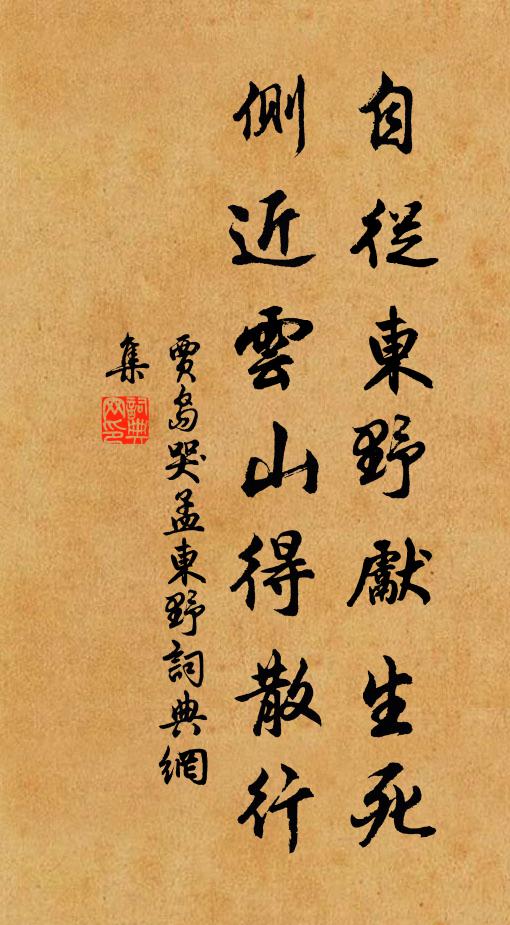 自從東野獻生死
側近雲山得散行
賈島哭孟東野詞典網
集
詞典
网印